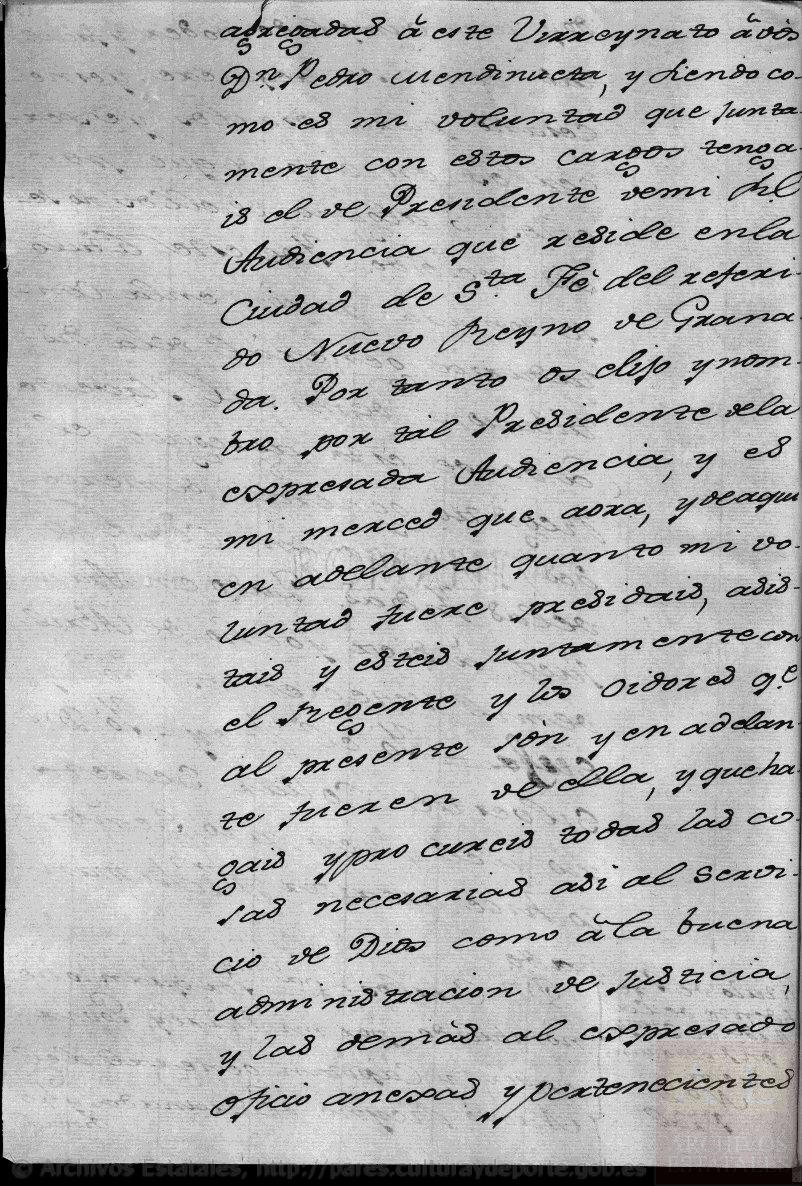 agregadas á este Virreynato á vós
Dn. Pedro Mendinueta, y siendo co-
mo es mi voluntad que junta-
mente con estos cargos tenga-
is el de Presidente demi Rl.
Audiencia que reside enla
Ciudad de Sta. Fé del referi-
do Nuevo Reyno de Grana-
da. Por tanto os elijo y nom-
bro por tal Presidente dela
expresada Audiencia, y es
mi merced que aora, y deaqui
en adelante quanto mi vo-
luntad fuere presidais, asis-
tais y esteis juntamente con
el Regente y los Oidores qe.
al presente són y en adelan-
te fueren de ella, y que ha-
gais y procureis todas las co-
sas necesarias asi al servi-
cio de Dios como á la buena
administracion de justicia,
y las demás al expresado
oficio anexas y pertenecientes
© Archivos Estatales, http://pares.culturaydeporte.gob.es
ARCHIVOS
ESTATALES